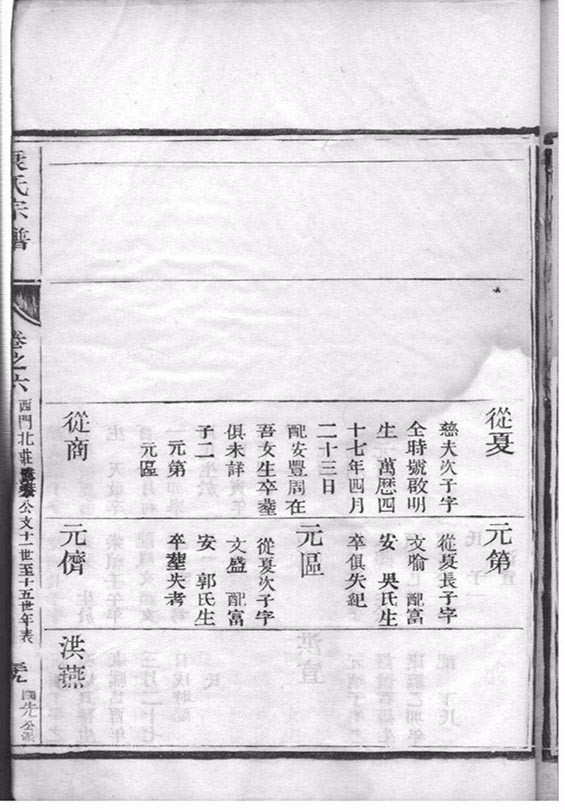 從夏
慈夫次子字
全時號啟明
生 萬歷四
十七年四月
二十三日
配安豐周在
吾女生卒塟
俱未詳
子二
元第
元區
從商
元第
從夏長子字
文喻 配富
安 吳氏生
卒俱失紀
元區
從夏次子字
文盛 配富
安 郭氏生
卒塟失考
元儕
洪燕
氏宗譜
卷之六
西門北莊
公支十一世至十五世年表